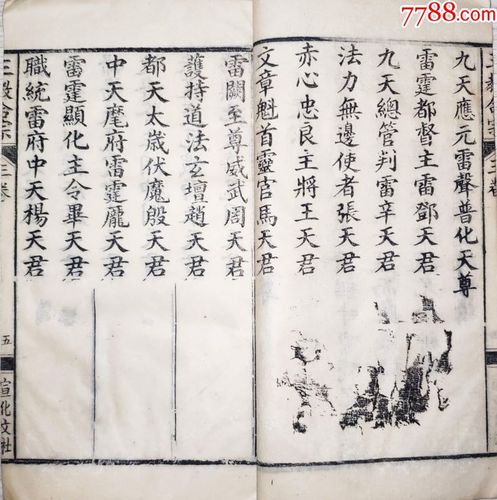 九天應元雷聲普化天尊
雷霆都督主雷鄧天君
九天總管判雷辛天君
法力無邊使者張天君
赤心忠良主將王天君
文章魁首靈官馬天君
雷闕至尊威武周天君
護持道法玄壇趙天君
都天太歲伏魔殷天君
中天麾府雷霆龐天君
雷霆顯化主令畢天君
職統雷府中天楊天君
三教會宗
三卷
五
宣化文社
7788.com